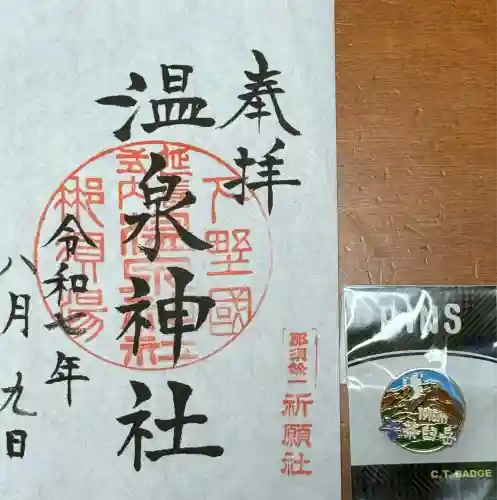 奉拝
温泉神社
令和七年
八月九日
下野國
延喜式内
温泉神社
那須湯
那須餘一
祈願社
PINS
1915m
茶臼岳
C.T. BADGE